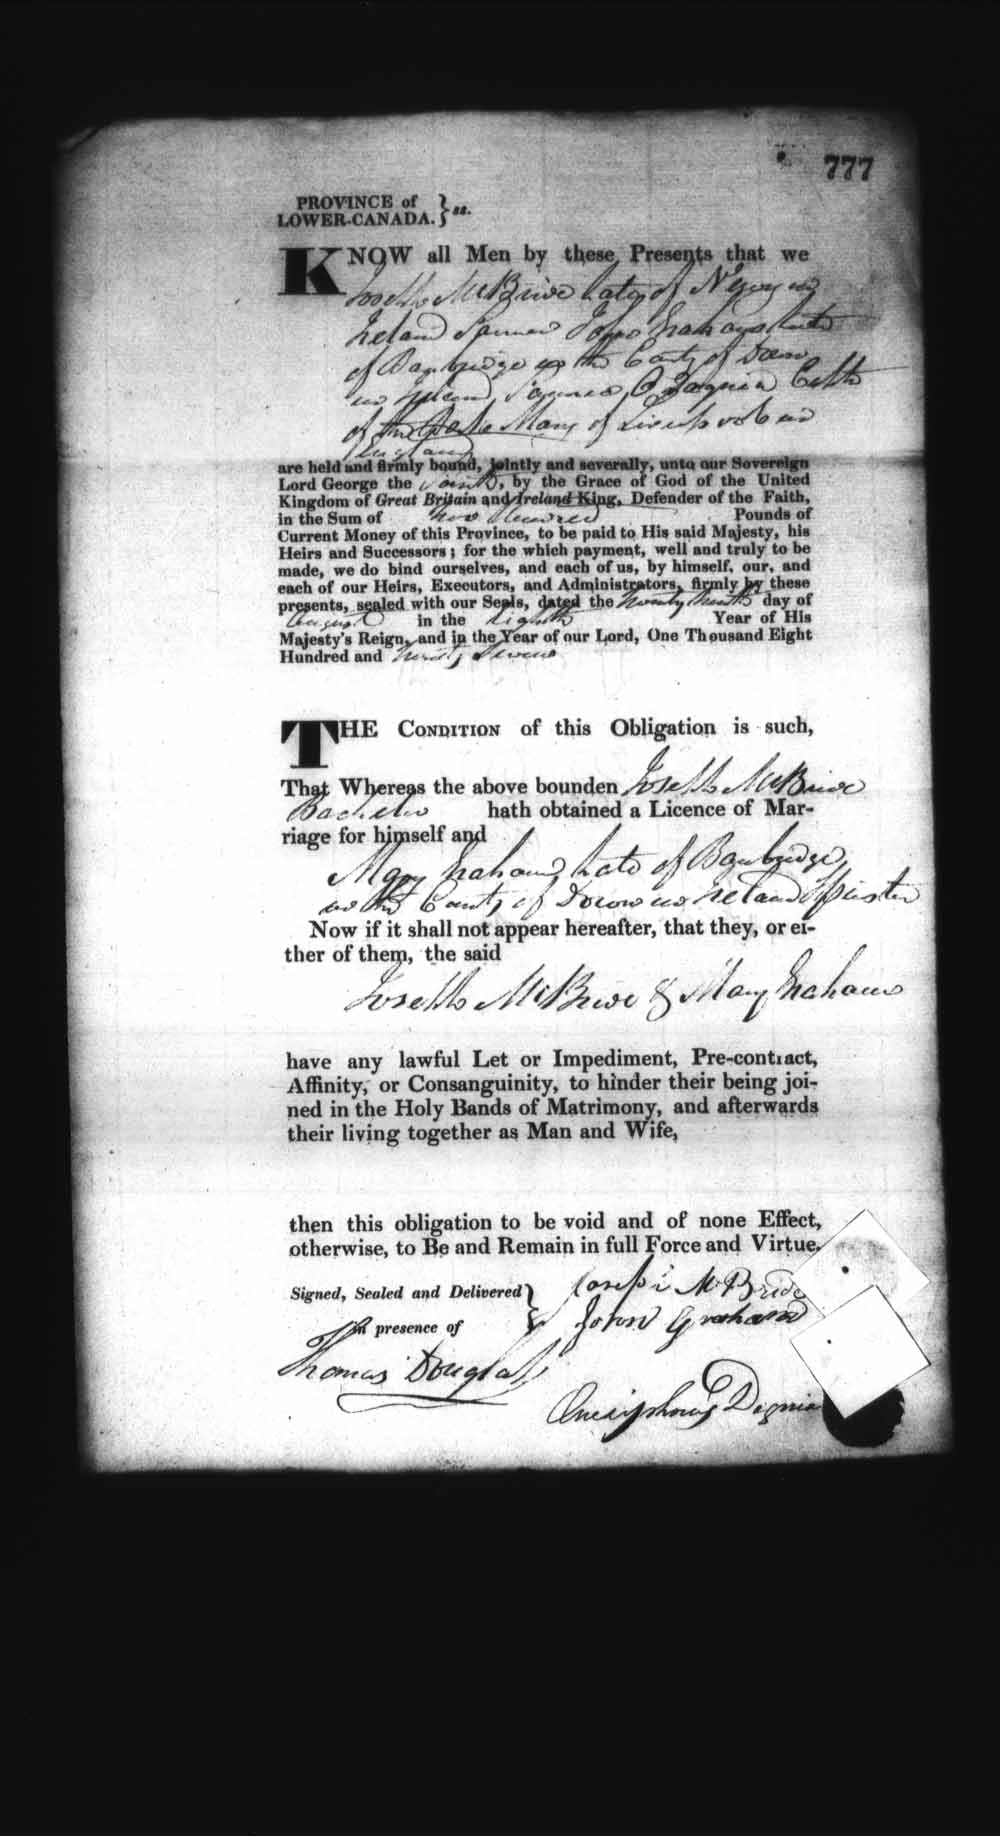 777
PROVINCE of
LOWER-CANADA. } ss.
KNOW all Men by these Presents that we
Joseph McBride late of Newry in
Ireland Farmer John Graham late
of Banbridge in the County of Down
in Ireland Farmer O Dignia
of the Mary of Liverpool in
England
are held and firmly bound, jointly and severally, unto our Sovereign
Lord George the Fourth, by the Grace of God of the United
Kingdom of Great Britain and Ireland King, Defender of the Faith,
in the Sum of Two Hundred Pounds of
Current Money of this Province, to be paid to His said Majesty, his
Heirs and Successors; for the which payment, well and truly to be
made, we do bind ourselves, and each of us, by himself, our, and
each of our Heirs, Executors, and Administrators, firmly by these
presents, sealed with our Seals, dated the day of
August in the Eighth Year of His
Majesty's Reign, and in the Year of our Lord, One Thousand Eight
Hundred and twenty Seven
THE CONDITION of this Obligation is such,
That Whereas the above bounden Joseph McBride
Bachelor hath obtained a Licence of Mar-
riage for himself and
Mary Graham late of Banbridge
in the County of Down in Ireland Spinster
Now if it shall not appear hereafter, that they, or ei-
ther of them, the said
Joseph McBride & Mary Graham
have any lawful Let or Impediment, Pre-contract,
Affinity, or Consanguinity, to hinder their being joi-
ned in the Holy Bands of Matrimony, and afterwards
their living together as Man and Wife,
then this obligation to be void and of none Effect,
otherwise, to Be and Remain in full Force and Virtue.
Signed, Sealed and Delivered } Joseph McBride
In presence of John Graham
Thomas Douglas
Dignia